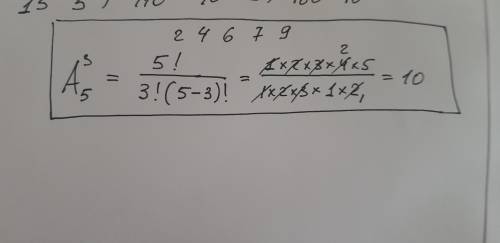 2 4 6 7 9
A₅³ = 5! / 3!(5-3)! = 1×2×3×4×5 / 1×2×3×1×2 = 10
2
1